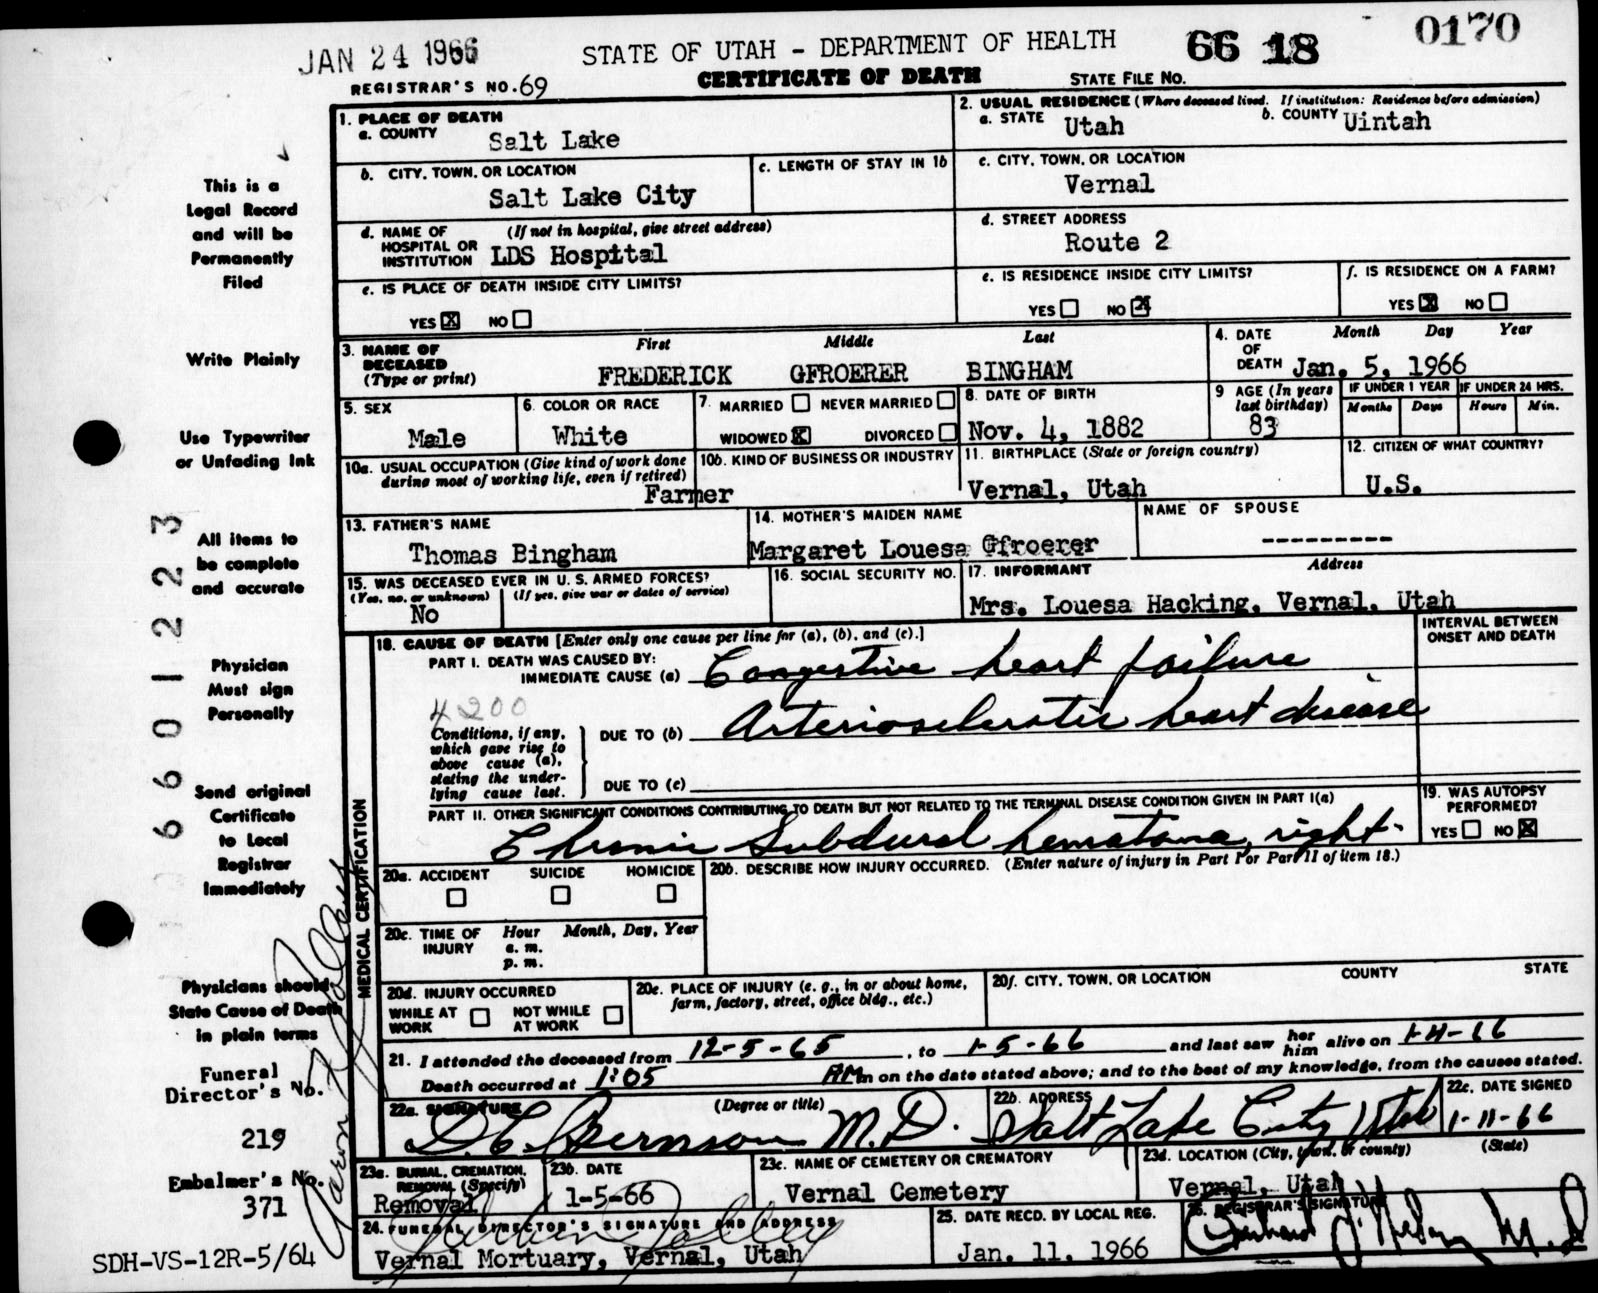 JAN 24 1966
STATE OF UTAH - DEPARTMENT OF HEALTH
66 18
0170
REGISTRAR'S NO. 69
CERTIFICATE OF DEATH
STATE FILE NO.
1. PLACE OF DEATH
a. COUNTY Salt Lake
2. USUAL RESIDENCE (Where deceased lived. If institution: Residence before admission)
a. STATE Utah
b. COUNTY Uintah
b. CITY, TOWN, OR LOCATION
Salt Lake City
c. LENGTH OF STAY IN 1b
c. CITY, TOWN, OR LOCATION
Vernal
d. NAME OF (If not in hospital, give street address)
HOSPITAL OR
INSTITUTION LDS Hospital
d. STREET ADDRESS
Route 2
e. IS PLACE OF DEATH INSIDE CITY LIMITS?
YES X NO
e. IS RESIDENCE INSIDE CITY LIMITS?
YES NO X
f. IS RESIDENCE ON A FARM?
YES X NO
3. NAME OF DECEASED
(Type or print)
First Middle Last
FREDERICK GFROERER BINGHAM
4. DATE OF DEATH
Month Day Year
Jan. 5, 1966
5. SEX
Male
6. COLOR OR RACE
White
7. MARRIED NEVER MARRIED
WIDOWED X DIVORCED
8. DATE OF BIRTH
Nov. 4, 1882
9 AGE (In years last birthday)
83
IF UNDER 1 YEAR
Months Days
IF UNDER 24 HRS.
Hours Min.
10a. USUAL OCCUPATION (Give kind of work done
during most of working life, even if retired)
Farmer
10b. KIND OF BUSINESS OR INDUSTRY
11. BIRTHPLACE (State or foreign country)
Vernal, Utah
12. CITIZEN OF WHAT COUNTRY?
U.S.
13. FATHER'S NAME
Thomas Bingham
14. MOTHER'S MAIDEN NAME
Margaret Louesa Gfroerer
NAME OF SPOUSE
---------
15. WAS DECEASED EVER IN U. S. ARMED FORCES?
(Yes, no, or unknown) (If yes, give war or dates of service)
No
16. SOCIAL SECURITY NO.
17. INFORMANT Address
Mrs. Louesa Hacking, Vernal, Utah
MEDICAL CERTIFICATION
18. CAUSE OF DEATH [Enter only one cause per line for (a), (b), and (c).]
INTERVAL BETWEEN
ONSET AND DEATH
PART I. DEATH WAS CAUSED BY:
IMMEDIATE CAUSE (a) Congestive heart failure
4200
Conditions, if any,
which gave rise to
above cause (a),
stating the under-
lying cause last.
DUE TO (b) Arteriosclerotic heart disease
DUE TO (c)
PART II. OTHER SIGNIFICANT CONDITIONS CONTRIBUTING TO DEATH BUT NOT RELATED TO THE TERMINAL DISEASE CONDITION GIVEN IN PART I(a)
Chronic Subdural hematoma, right.
19. WAS AUTOPSY
PERFORMED?
YES NO X
20a. ACCIDENT SUICIDE HOMICIDE
20b. DESCRIBE HOW INJURY OCCURRED. (Enter nature of injury in Part I or Part II of item 18.)
20c. TIME OF INJURY
Hour Month, Day, Year
a. m.
p. m.
20d. INJURY OCCURRED
WHILE AT WORK NOT WHILE AT WORK
20e. PLACE OF INJURY (e. g., in or about home,
farm, factory, street, office bldg., etc.)
20f. CITY, TOWN, OR LOCATION COUNTY STATE
21. I attended the deceased from 12-5-65, to 1-5-66 and last saw her him alive on 1-4-66
Death occurred at 1:05 AM m on the date stated above; and to the best of my knowledge, from the causes stated.
22a. SIGNATURE (Degree or title)
M.D.
22b. ADDRESS
Salt Lake City Utah
22c. DATE SIGNED
1-11-66
23a. BURIAL, CREMATION,
REMOVAL (Specify)
Removal
23b. DATE
1-5-66
23c. NAME OF CEMETERY OR CREMATORY
Vernal Cemetery
23d. LOCATION (City, town, or county) (State)
Vernal, Utah
24. FUNERAL DIRECTOR'S SIGNATURE AND ADDRESS
Vernal Mortuary, Vernal, Utah
25. DATE RECD. BY LOCAL REG.
Jan. 11, 1966
26. REGISTRAR'S SIGNATURE
This is a
Legal Record
and will be
Permanently
Filed
Write Plainly
Use Typewriter
or Unfading Ink
All items to
be complete
and accurate
Physician
Must sign
Personally
Send original
Certificate
to Local
Registrar
Immediately
Physicians should
State Cause of Death
in plain terms
Funeral
Director's No.
219
Embalmer's No.
371
SDH-VS-12R-5/64
3660122 3